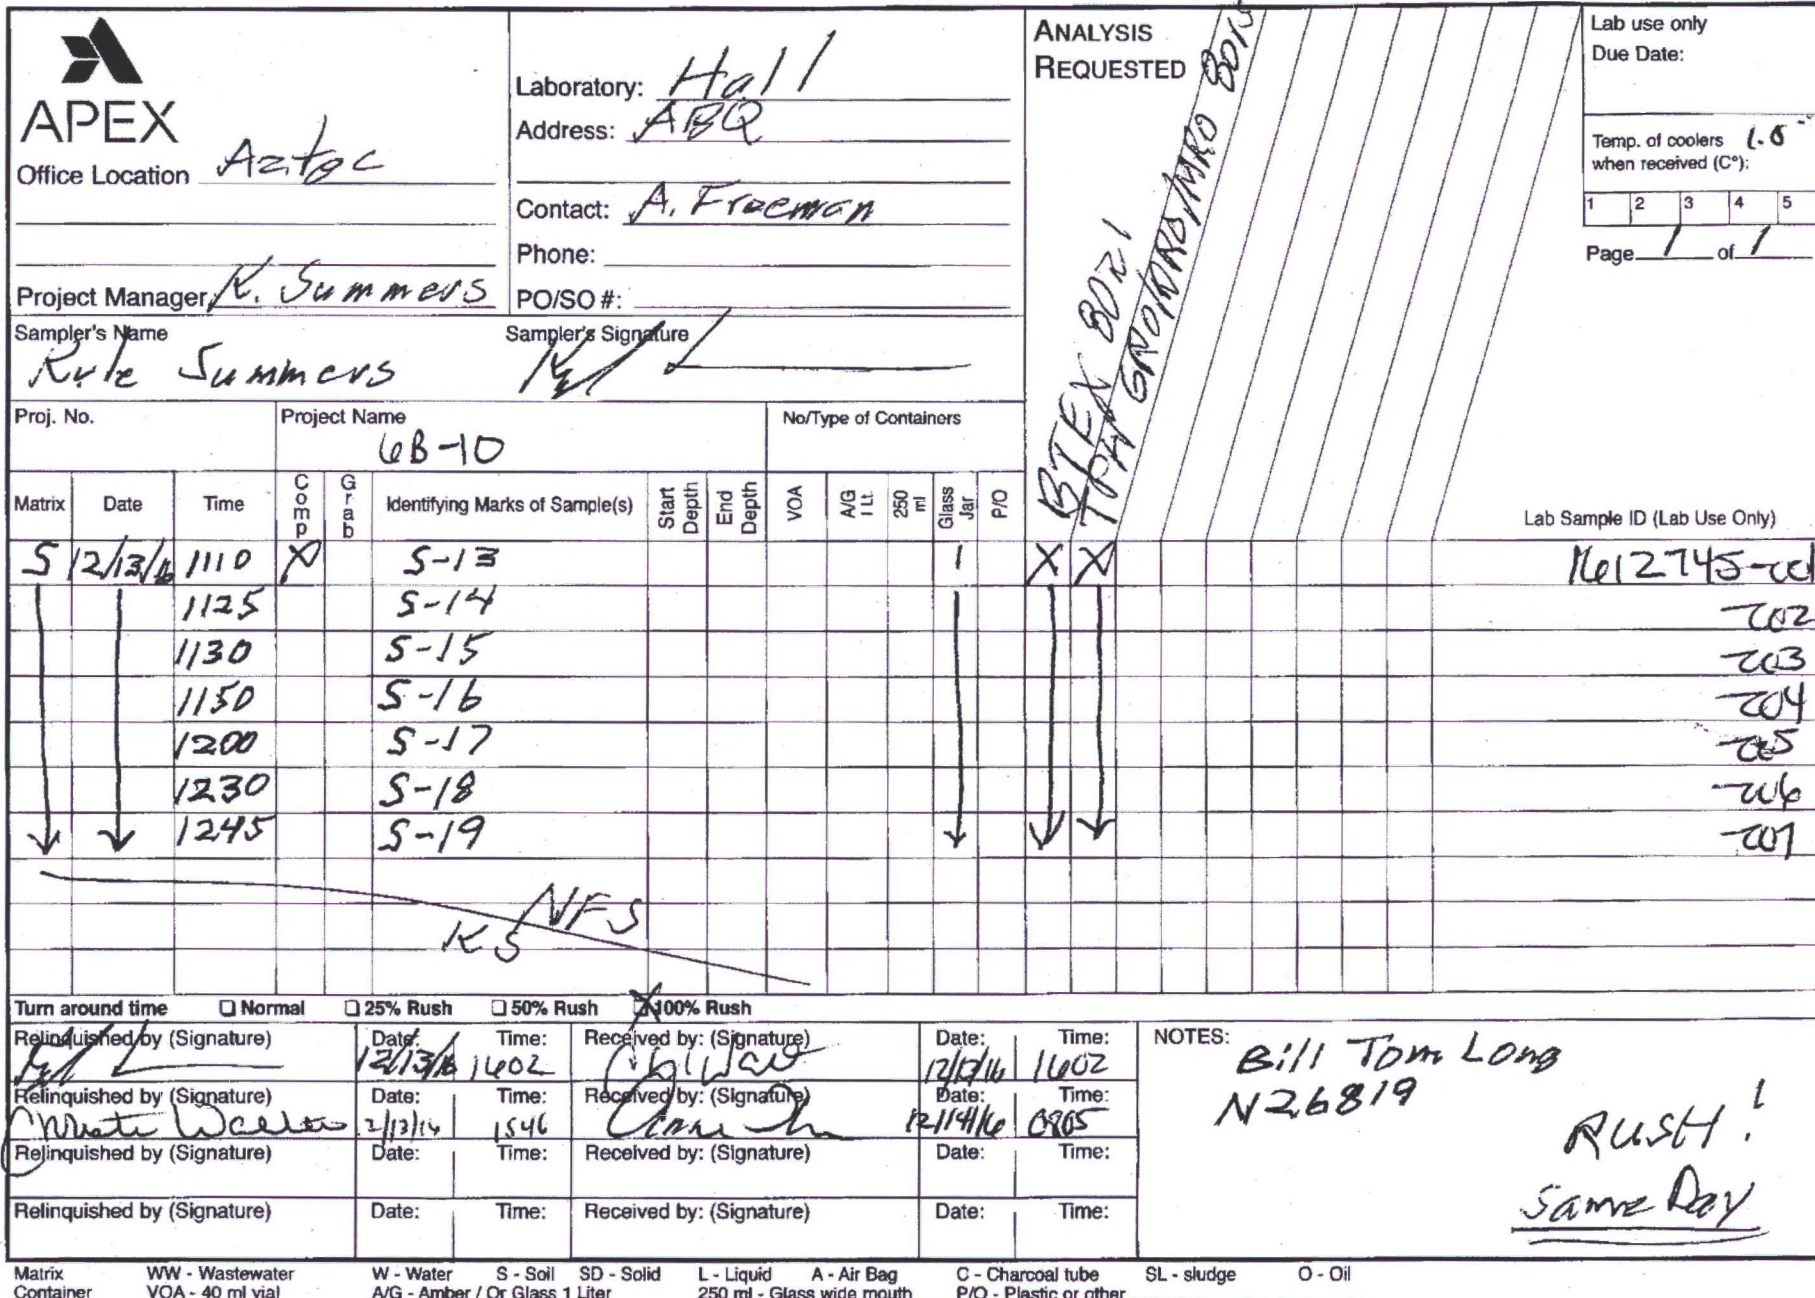 APEX
Office Location Aztec
Project Manager K. Summers
Laboratory: Hall
Address: ABQ
Contact: A. Freeman
Phone:
PO/SO #:
ANALYSIS
REQUESTED
BTEX 8021
TPH GRO/DRO/MRO 8015
Lab use only
Due Date:
Temp. of coolers 1.0
when received (C°):
1 2 3 4 5
Page 1 of 1
Sampler's Name
Kyle Summers
Sampler's Signature
Proj. No.
Project Name
6B-10
No/Type of Containers
Matrix Date Time Comp Grab Identifying Marks of Sample(s) Start Depth End Depth VOA A/G 1 Lt. 250 ml Glass Jar P/O Lab Sample ID (Lab Use Only)
S 12/13/16 1110 X S-13 1 X X 1612745-001
1125 S-14 -002
1130 S-15 -003
1150 S-16 -004
1200 S-17 -005
1230 S-18 -006
1245 S-19 -007
NFS
KS
Turn around time ❑ Normal ❑ 25% Rush ❑ 50% Rush X 100% Rush
Relinquished by (Signature) Date: 12/13/16 Time: 1602 Received by: (Signature) Date: 12/13/16 Time: 1602
Relinquished by (Signature) Date: 12/13/16 Time: 1546 Received by: (Signature) Date: 12/14/16 Time: 0805
Relinquished by (Signature) Date: Time: Received by: (Signature) Date: Time:
Relinquished by (Signature) Date: Time: Received by: (Signature) Date: Time:
NOTES:
Bill Tom Long
N26819
RUSH!
Same Day
Matrix WW - Wastewater W - Water S - Soil SD - Solid L - Liquid A - Air Bag C - Charcoal tube SL - sludge O - Oil
Container VOA - 40 ml vial A/G - Amber / Or Glass 1 Liter 250 ml - Glass wide mouth P/O - Plastic or other